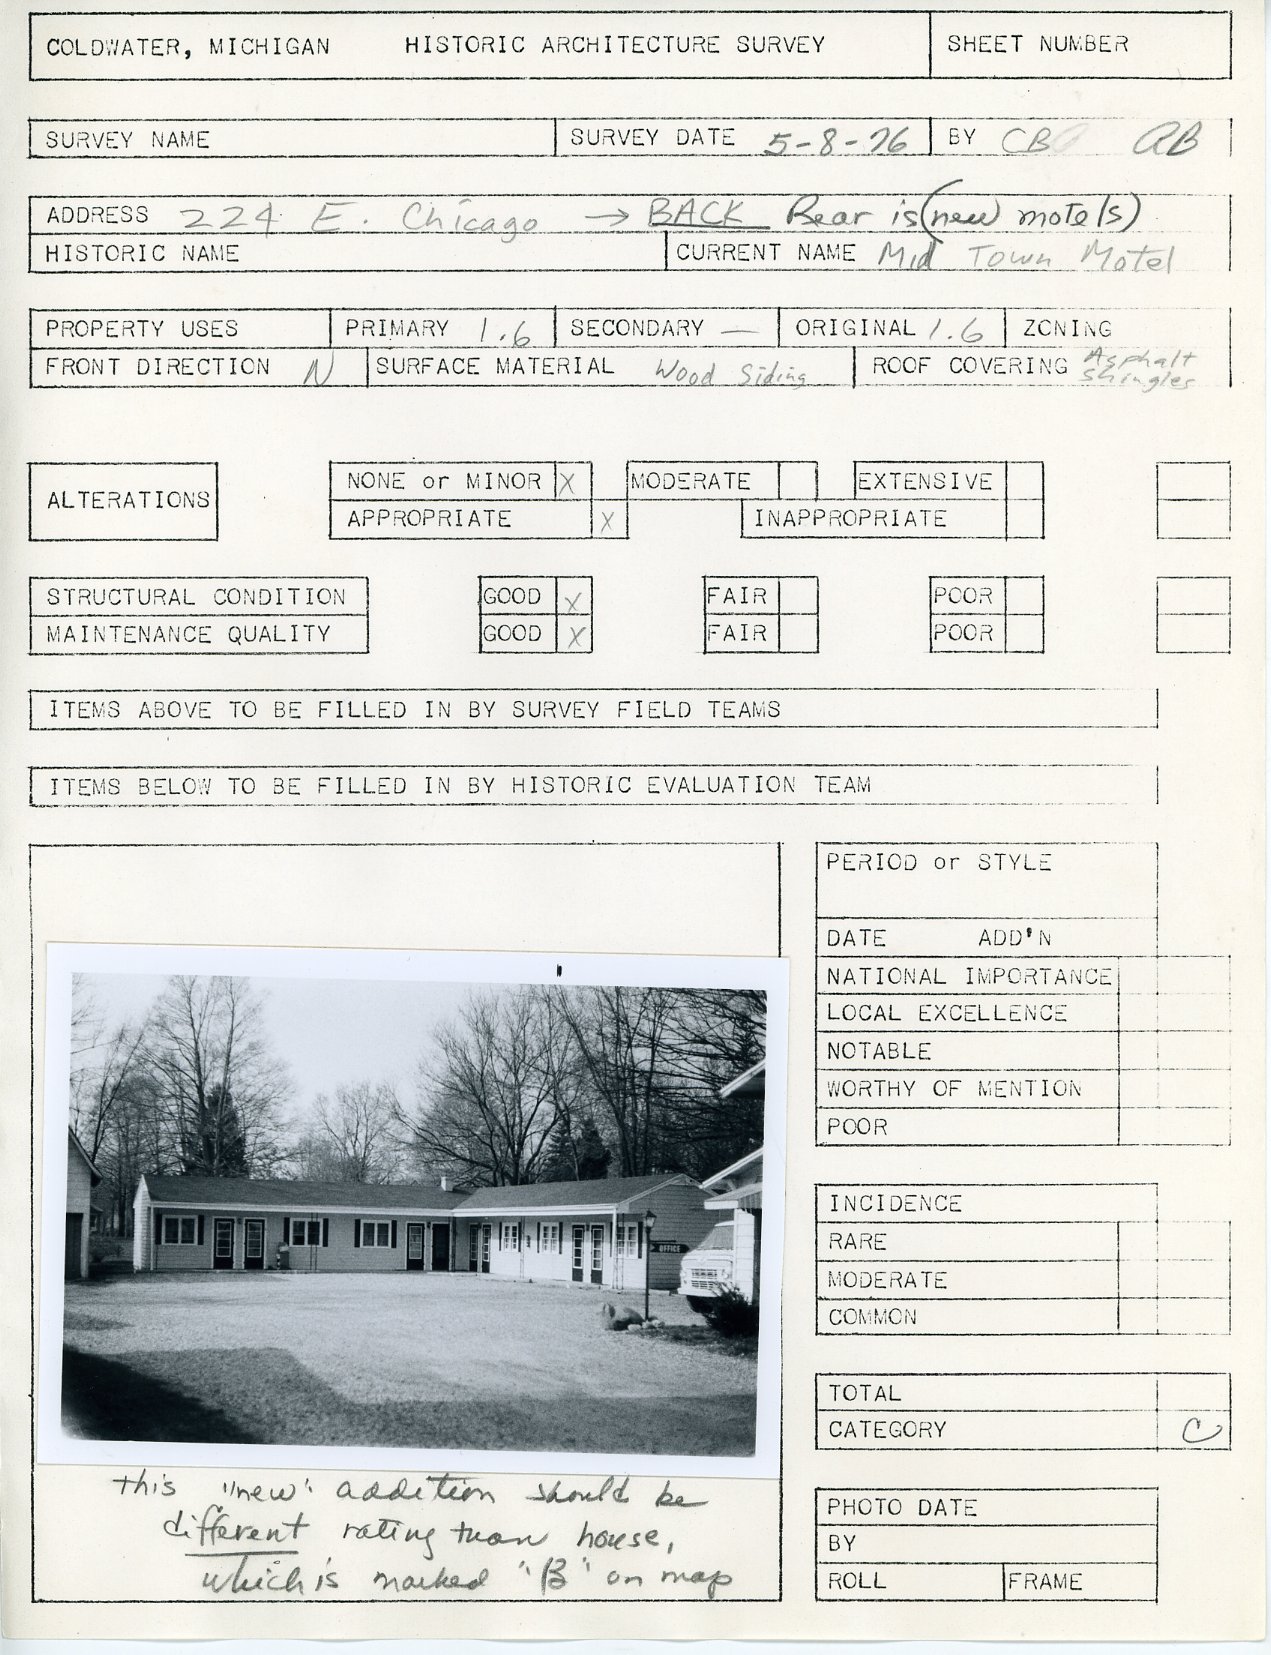 COLDWATER, MICHIGAN HISTORIC ARCHITECTURE SURVEY SHEET NUMBER
SURVEY NAME SURVEY DATE 5-8-76 BY CB AB
ADDRESS 224 E. Chicago → BACK Rear is (new motels)
HISTORIC NAME CURRENT NAME Mid Town Motel
PROPERTY USES PRIMARY 1.6 SECONDARY — ORIGINAL 1.6 ZONING
FRONT DIRECTION N SURFACE MATERIAL Wood Siding ROOF COVERING Asphalt Shingles
ALTERATIONS
NONE or MINOR X MODERATE EXTENSIVE
APPROPRIATE X INAPPROPRIATE
STRUCTURAL CONDITION GOOD X FAIR POOR
MAINTENANCE QUALITY GOOD X FAIR POOR
ITEMS ABOVE TO BE FILLED IN BY SURVEY FIELD TEAMS
ITEMS BELOW TO BE FILLED IN BY HISTORIC EVALUATION TEAM
PERIOD or STYLE
DATE ADD'N
NATIONAL IMPORTANCE
LOCAL EXCELLENCE
NOTABLE
WORTHY OF MENTION
POOR
INCIDENCE
RARE
MODERATE
COMMON
TOTAL
CATEGORY C
PHOTO DATE
BY
ROLL FRAME
OFFICE
this "new" addition should be
different rating than house,
which is marked "B" on map